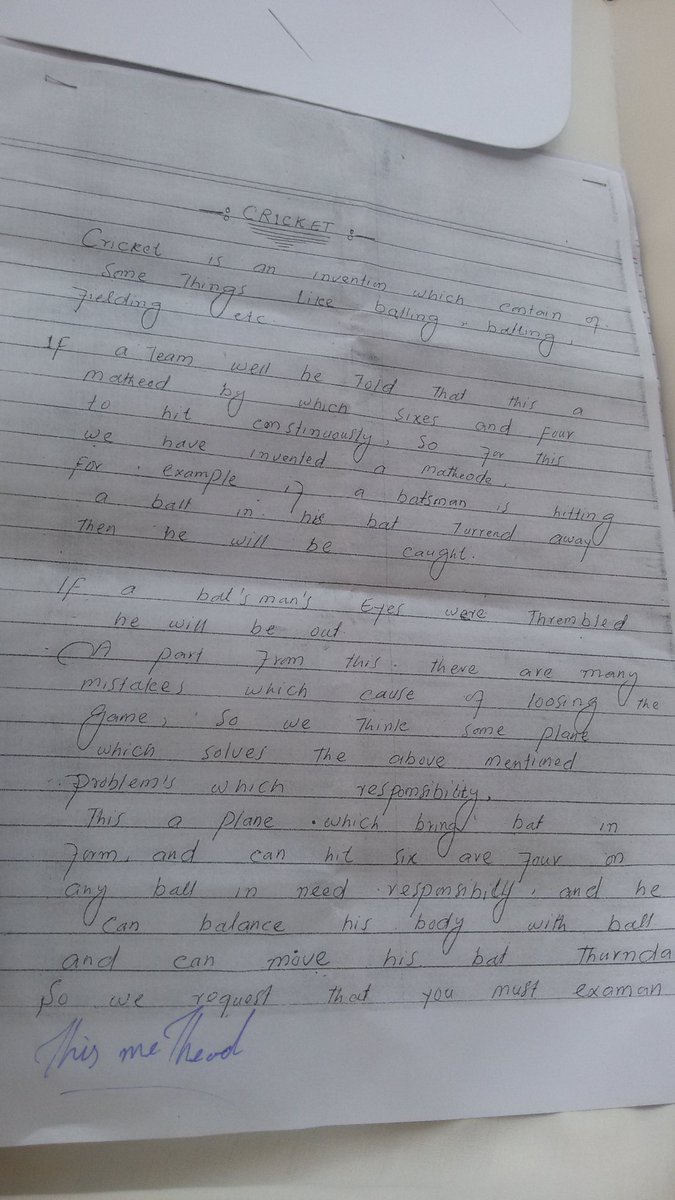 CRICKET
Cricket is an invention which contain of.
Some Things like balling, batting,
Fielding etc.
If a Team well be Told that this a
matheed by which sixes and four
to hit constinuously, So for this
we have invented a matheode.
For example if a batsman is hitting
a ball in his bat Turrend away
Then he will be caught.
If a bat's man's Eyes were Thrembled
he will be out
A part From this. there are many
mistakes which cause of loosing the
game, So we Think some plane
which solves the above mentioned
problem's which responsibility,
This a plane which bring bat in
Form, and can hit six are four on
any ball in need responsibilty. and he
can balance his body with ball
and can move his bat Thurnda
So we roquest that you must examan
This meThead